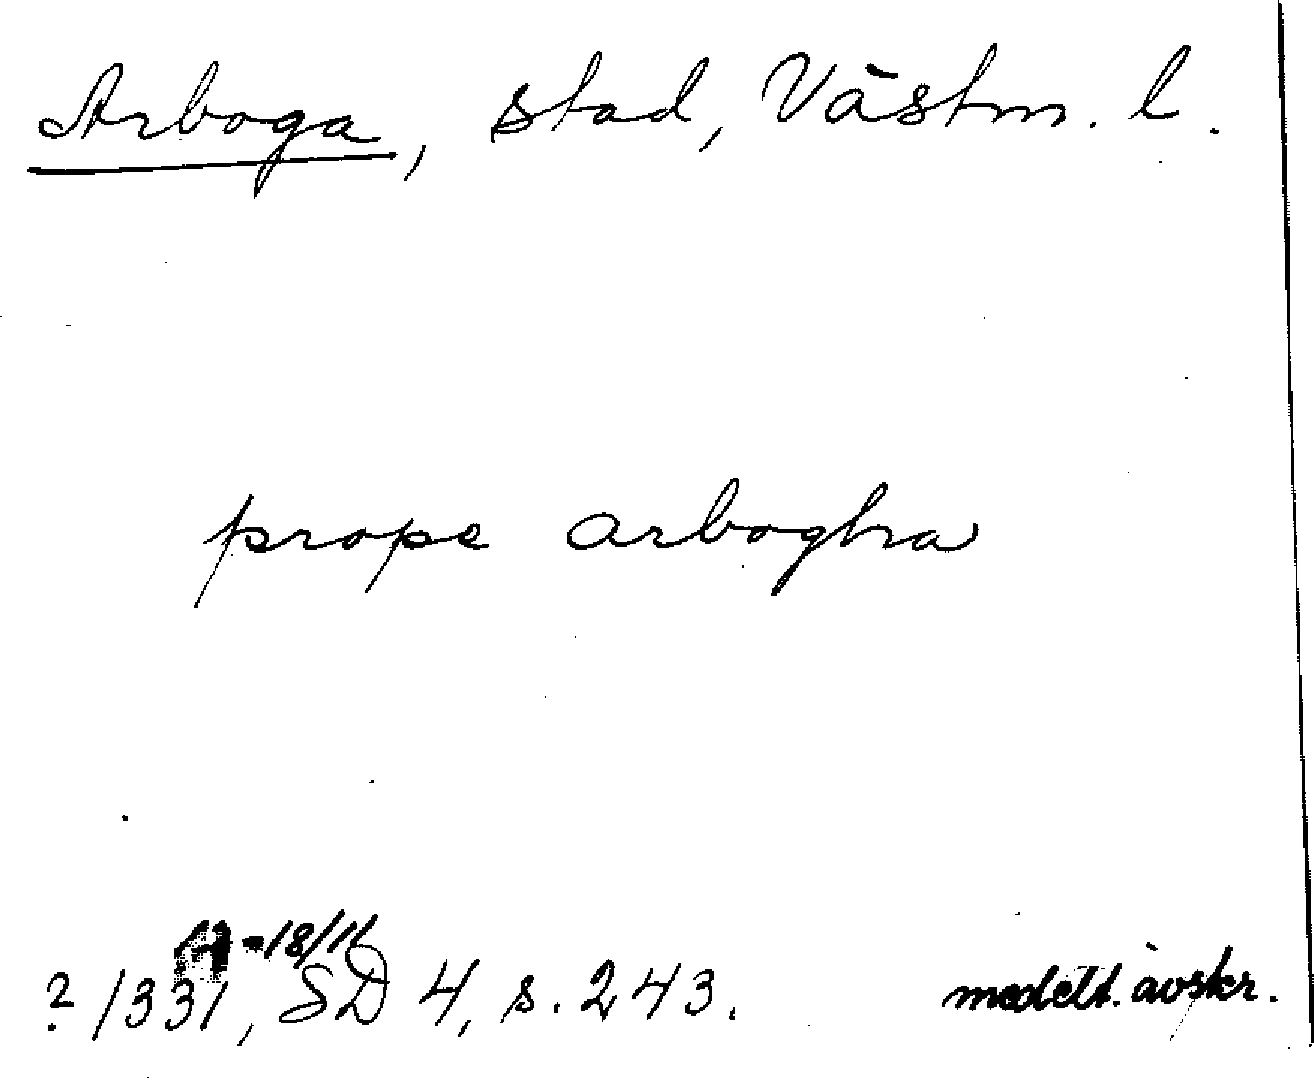 Arboga, stad, Västm. l.
prope arbogha
-18/11
? 1331, SD 4, s. 243. medelt. avskr.